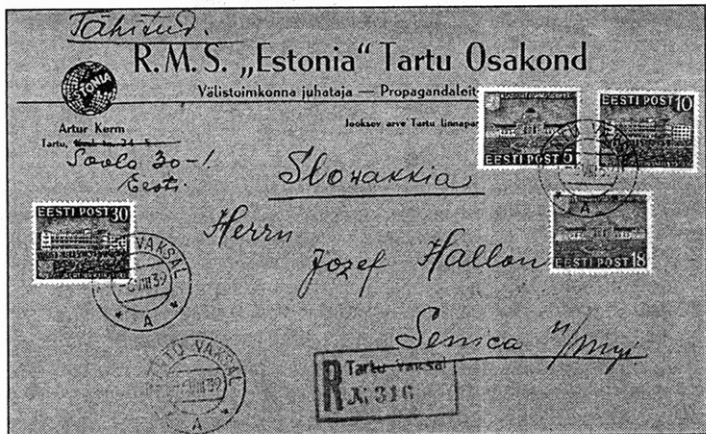 Tähitud.
R.M.S. „Estonia“ Tartu Osakond
Välistoimkonna juhataja — Propagandaleit
ESTONIA
Artur Kerm
Jooksev arve Tartu linnapan
Tartu,
Soola 30-1
Eesti.
EESTI POST 5
EESTI POST 10
EESTI POST 18
EESTI POST 30
Slovakkia
Herrn
Jozef Hallon
Senica n/Myj.
VAKSAL
VIII 39
A
TARTU VAKSAL
VIII 39
A
TARTU VAKSAL
A
R Tartu Vaksal
№ 316